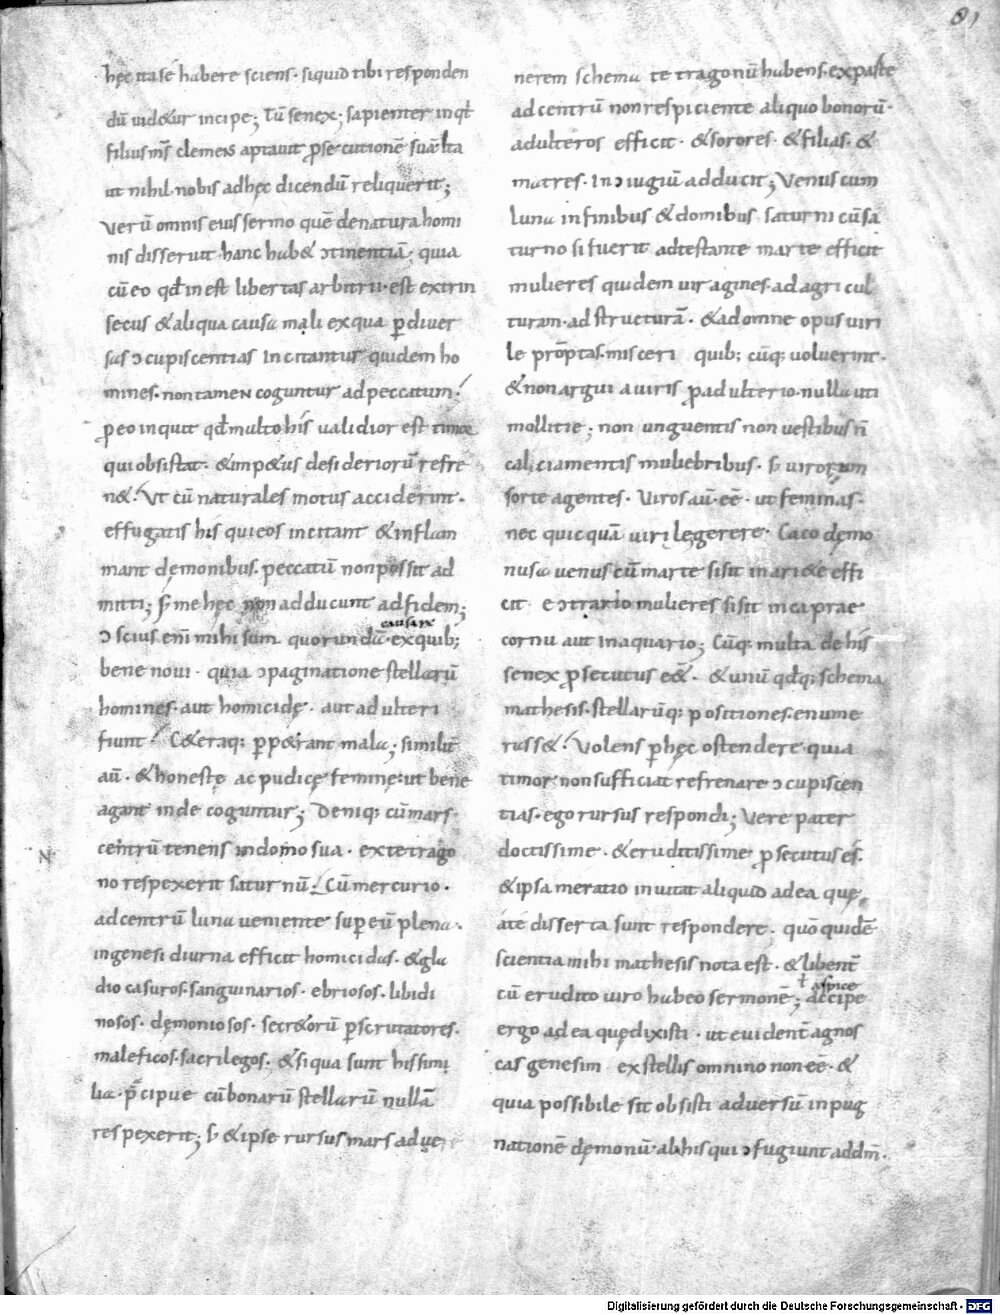 81
hęc ita sé habere sciens· siquid tibi responden
dū uidetur incipe; Tū senex; sapienter inqđ
filius ms̄ clemens aptauit ꝑsecutionē suā· Ita
ut nihil nobis adhęc dicendū reliquerit;
Verū omnis eius sermo quē denatura homi
nis disseruit· hanc hab& ↄtinentiā· quia
cū eo qđ inest libertas arbitrii· est extrin
secus & aliqua causa mali ex qua ꝑ diuer
sas ↄcupiscentias Incitantur quidem ho
mines· non tamen coguntur ad peccatum!
ꝓ eo inquit qđ multo his ualidior est timor
qui obsistat· & imp&us desideriorū refre
n&! Ut cū naturales motus acciderint·
effugatis his qui eos incitant & inflam
mant dęmonibus· peccatū non possit ad
mitti; sꝫ me hęc non adducunt ad fidem;
causarū
ↄscius eni mihi sum quorundā· ex quibꝫ
bene noui· quia ↄpaginatione stellarū
homines· aut homicidę· aut adulteri
fiunt! C&eraqꝫ ꝑp&rant mala; similit̄
aū· & honestę ac pudicę feminę: ut bene
agant inde coguntur; Deniqꝫ cū mars·
centrū tenens in domo sua· ex tetrago
no respexerit saturnū; Cū mercurio·
ad centrū luna ueniente super eū plena·
in genesi diurna efficit homicidas· & gla
dio casuros· sanguinarios· ebriosos· libidi
nosos· dęmoniosos· secretorū ꝑscrutatores·
maleficos· sacrilegos· & siqua sunt his simi
lia· p̄cipue cū bonarū stellarū nullā
respexerit; sꝫ & ipse rursus mars ad ue
nerem schema tetragonū habens· ex parte
ad centrū non respiciente aliquo bonorū·
adulteros efficit· & sorores· & filias· &
matres· In ↄiugiū adducit; Venus cum
luna in finibus & domibus· saturni cū sa
turno si fuerit adtestante marte efficit
mulieres quidem uiragines· ad agricul
turam· ad structurā· & ad omne opus uiri
le prōptas· misceri quibꝫ cūqꝫ uoluerint·
& non argui a uiris ꝓ adulterio· nulla uti
mollitie; non unguentis non uestibus ñ
calciamentis muliebribus· sꝫ uirorum
sorte agentes· Viros aū· eē· ut feminas·
nec quicquā uiri le gerere· Caco dęmo
nusa uenus cū marte si sit in ari&e effi
cit e ↄtrario mulieres si sit in caprae
cornu aut in aquario; Cūqꝫ multa de his
senex ꝓsecutus e&̄· & unū qđqꝫ schema
mathesis· stellarūqꝫ positiones· enume
rass&! Volens ꝑ hęc ostendere quia
timor non sufficiat refrenare ↄcupiscen
tias· ego rursus respondi; Vere pater
doctissime· & eruditissime ꝓsecutus eś·
& ipsa me ratio inuitat aliquid ad ea quę
á te disserta sunt respondere· quō quidē
scientia mihi mathesis nota est· & libent̄
ł aspice
cū erudito uiro habeo sermonē; accipe
ergo ad ea quę dixisti· ut euident̄ agnos
cas genesim ex stellis omnino non· eē· &
quia possibile sit obsisti aduersū inpug
nationē dęmonū· ab his qui ↄfugiunt ad dm̄·
Digitalisierung gefördert durch die Deutsche Forschungsgemeinschaft - DFG